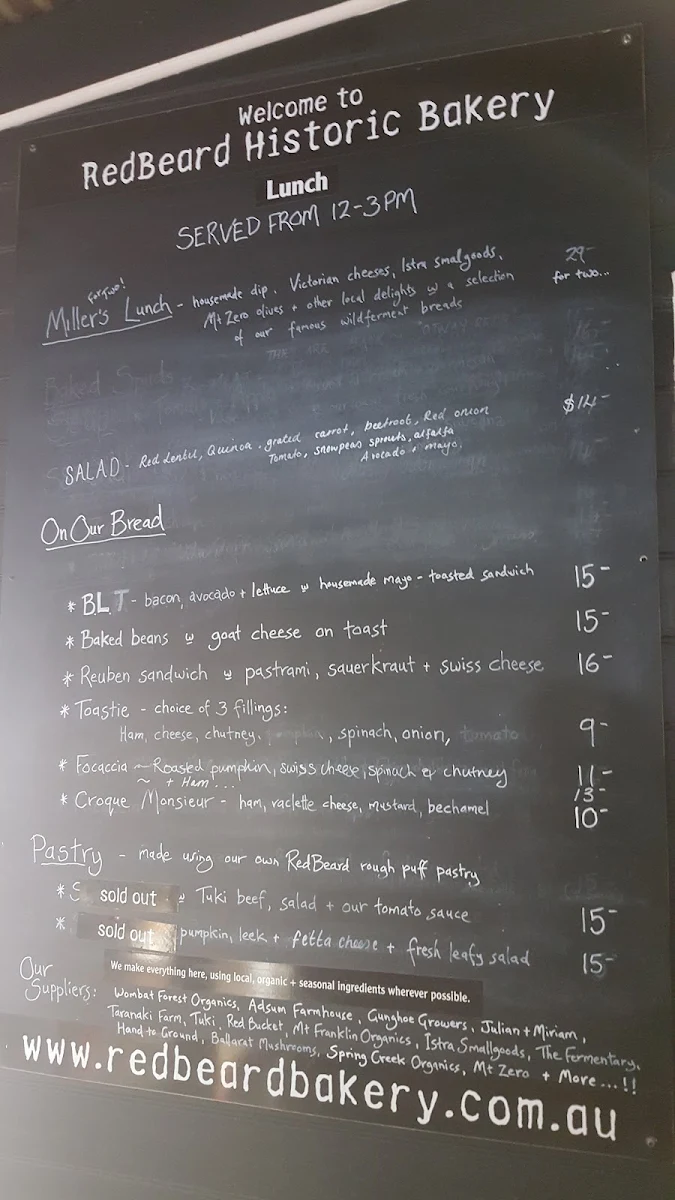 Welcome to
RedBeard Historic Bakery
Lunch
SERVED FROM 12-3PM
for two!
Miller's Lunch - housemade dip, Victorian cheeses, Istra smallgoods, 29-
Mt Zero olives + other local delights w a selection for two...
of our famous wildferment breads
SALAD - Red Lentil, Quinoa, grated carrot, beetroot, Red onion $14-
Tomato, snowpea sprouts, alfalfa
Avocado + mayo.
On Our Bread
* B.L.T - bacon, avocado + lettuce w housemade mayo - toasted sandwich 15-
* Baked beans w goat cheese on toast 15-
* Reuben sandwich w pastrami, sauerkraut + swiss cheese 16-
* Toastie - choice of 3 fillings:
Ham, cheese, chutney, pumpkin, spinach, onion, tomato 9-
* Focaccia - Roasted pumpkin, swiss cheese, spinach & chutney 11-
~ + Ham... 13-
* Croque Monsieur - ham, raclette cheese, mustard, bechamel 10-
Pastry - made using our own RedBeard rough puff pastry
* S sold out w Tuki beef, salad + our tomato sauce 15-
* sold out pumpkin, leek + fetta cheese + fresh leafy salad 15-
We make everything here, using local, organic + seasonal ingredients wherever possible.
Our Suppliers: Wombat Forest Organics, Adsum Farmhouse, Gunghoe Growers, Julian + Miriam,
Taranaki Farm, Tuki, Red Bucket, Mt Franklin Organics, Istra Smallgoods, The Fermentary,
Hand to Ground, Ballarat Mushrooms, Spring Creek Organics, Mt Zero + More...!!
www.redbeardbakery.com.au